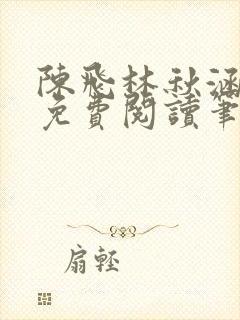 陳飛林秋涵
免費閱讀筆
扇輕